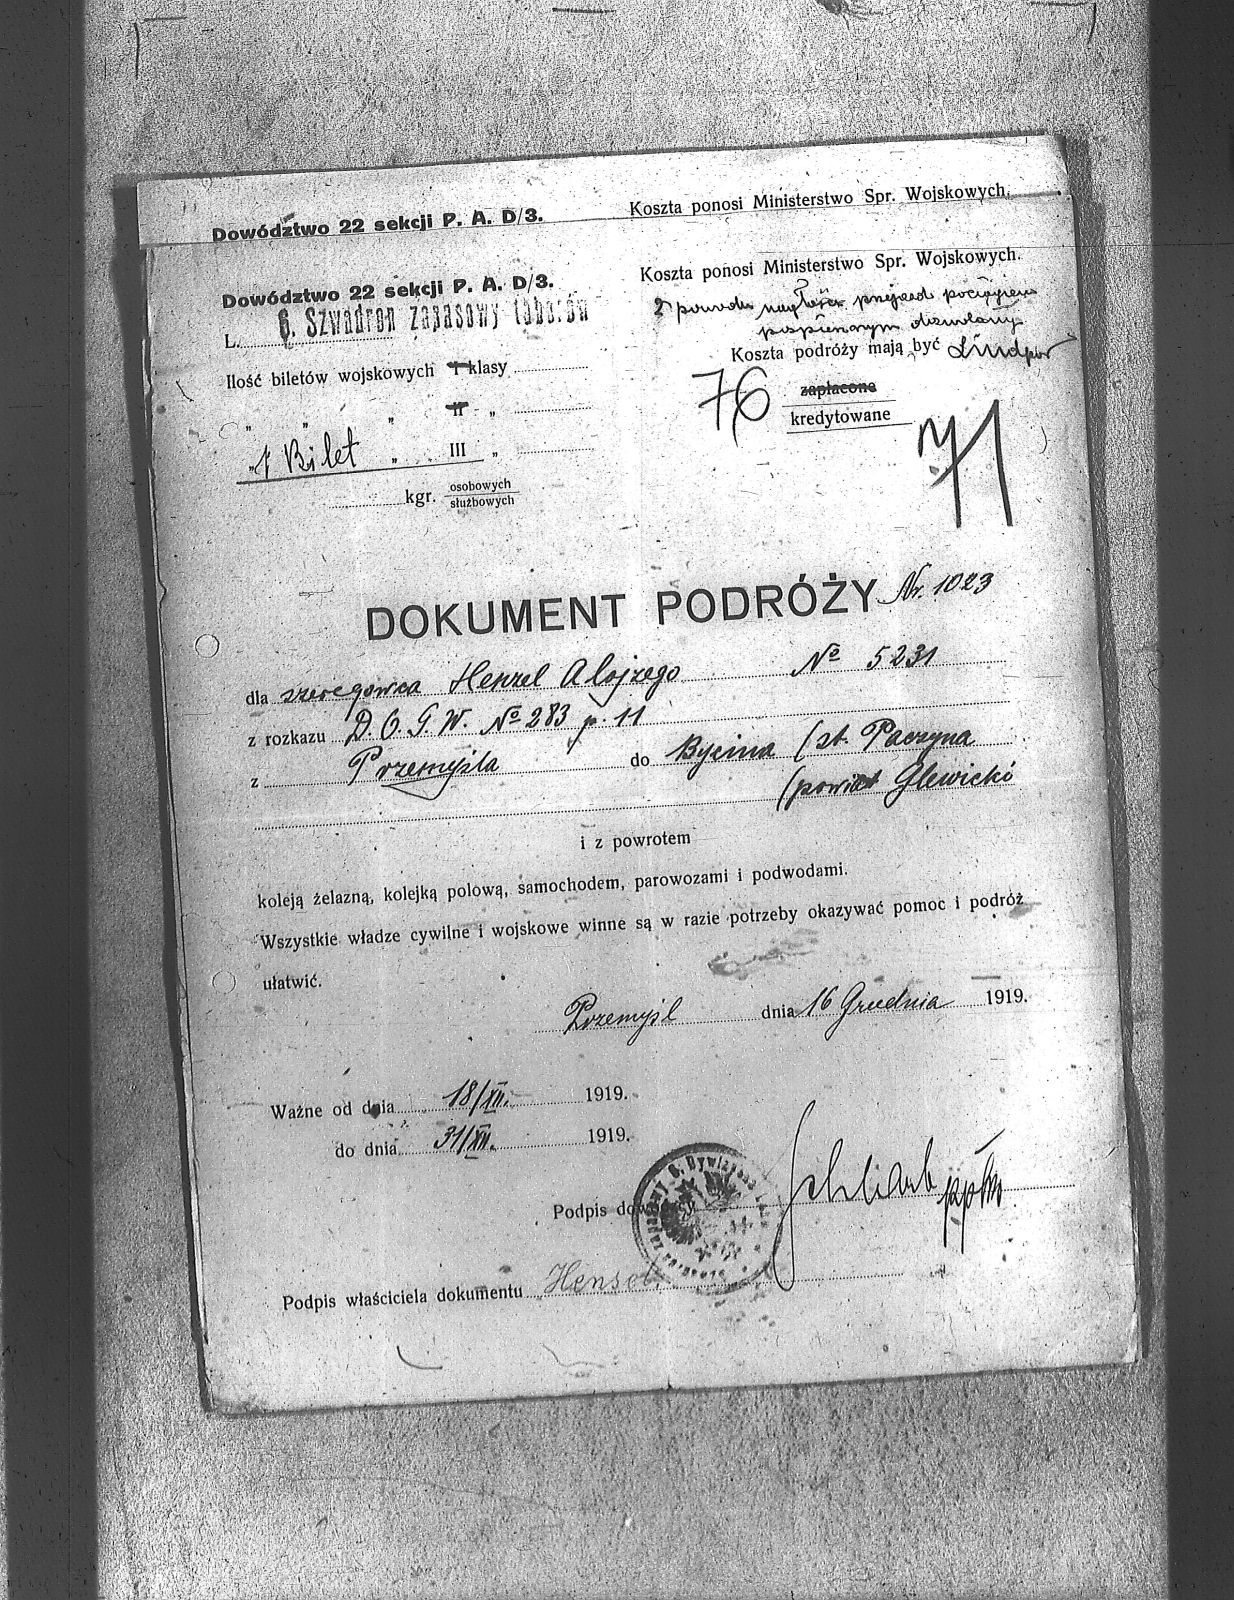 Dowództwo 22 sekcji P. A. D/3.
Koszta ponosi Ministerstwo Spr. Wojskowych.
Dowództwo 22 sekcji P. A. D/3.
Koszta ponosi Ministerstwo Spr. Wojskowych.
L. 6. Szwadron zapasowy taborów
Z powodu nagłości przejazd pociągiem
pospiesznym dozwolany
Koszta podróży mają być
zapłacone
kredytowane
76
71
Ilość biletów wojskowych I klasy
„ „ „ II „
1 Bilet „ III „
kgr. osobowych
służbowych
DOKUMENT PODRÓŻY Nr. 1023
dla szeregowca Henzel Alojzego № 5231
z rozkazu D.O.G.W. № 283 p. 11
z Przemyśla do Bycina (st. Paczyna
(powiat Glewicki
i z powrotem
koleją żelazną, kolejką polową, samochodem, parowozami i podwodami.
Wszystkie władze cywilne i wojskowe winne są w razie potrzeby okazywać pomoc i podróż
ułatwić.
Przemyśl dnia 16 Grudnia 1919.
Ważne od dnia 18/XII. 1919.
do dnia 31/XII. 1919.
Podpis dowódcy ppłk
Podpis właściciela dokumentu Hensel